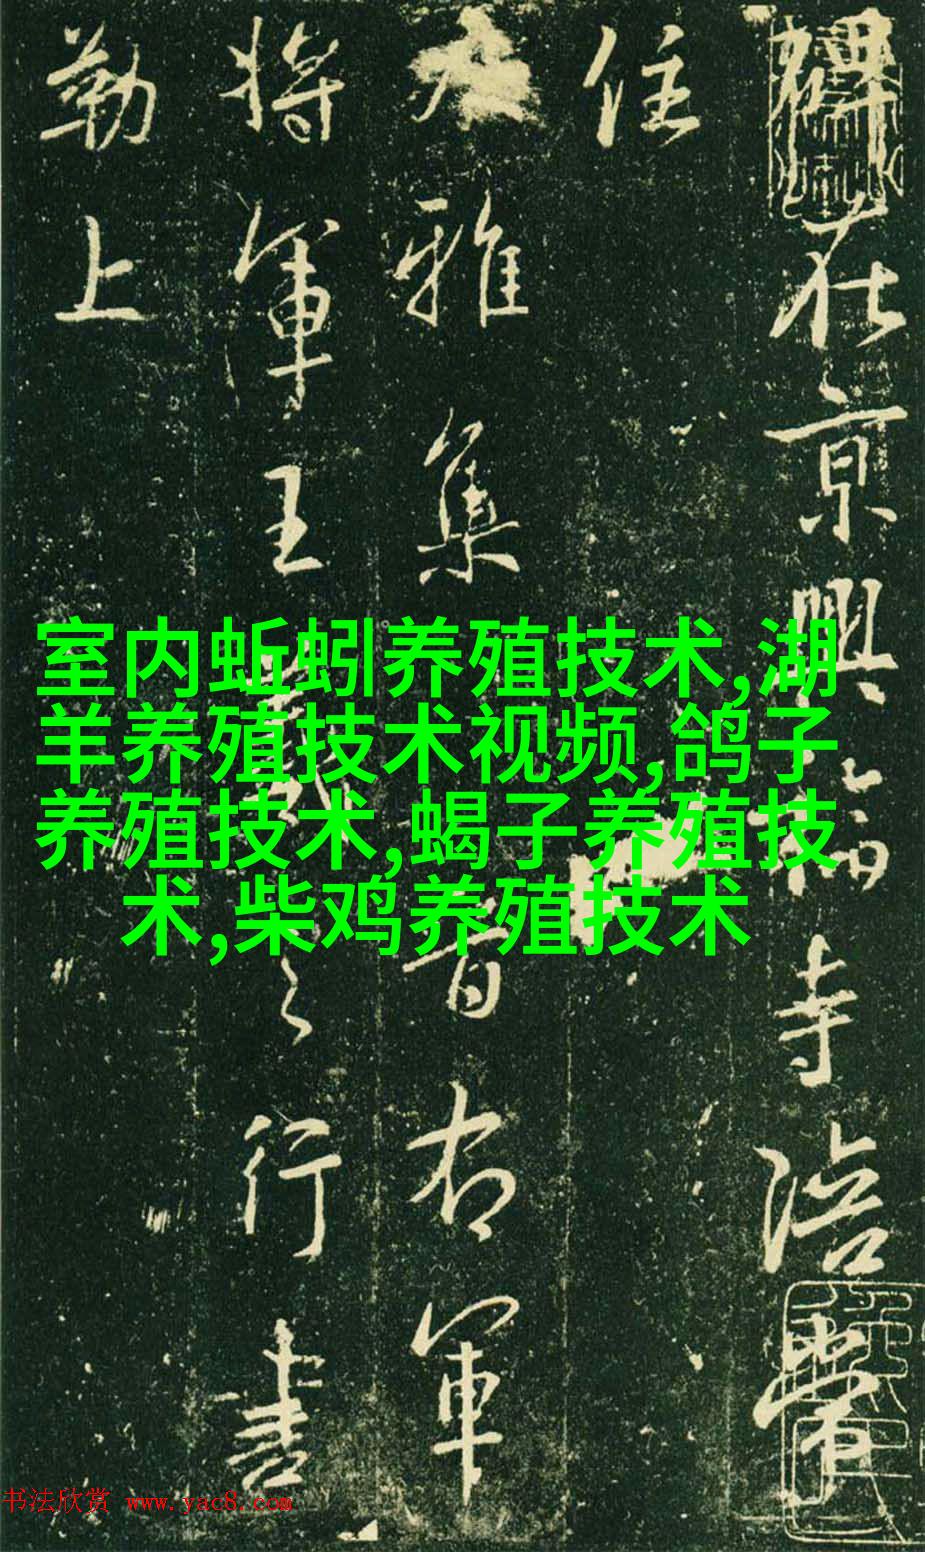 碑在京興福寺陪常
住
大雅集 晋右軍
将軍王羲之行書
勒上
室内蚯蚓养殖技术,湖
羊养殖技术视频,鸽子
养殖技术,蝎子养殖技
术,柴鸡养殖技术
书法欣赏 www.yac8.com